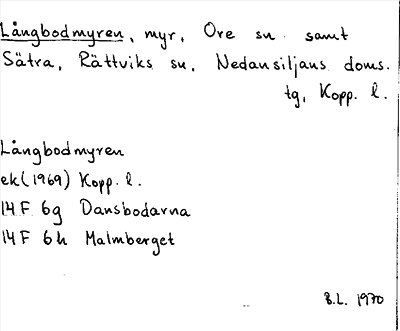 Långbodmyren, myr, Ore sn samt
Sätra, Rättviks sn, Nedansiljans doms.
tg, Kopp. l.
Långbodmyren
ek (1969) Kopp. l.
14 F 6g Dansbodarna
14 F 6h Malmberget
B.L. 1970